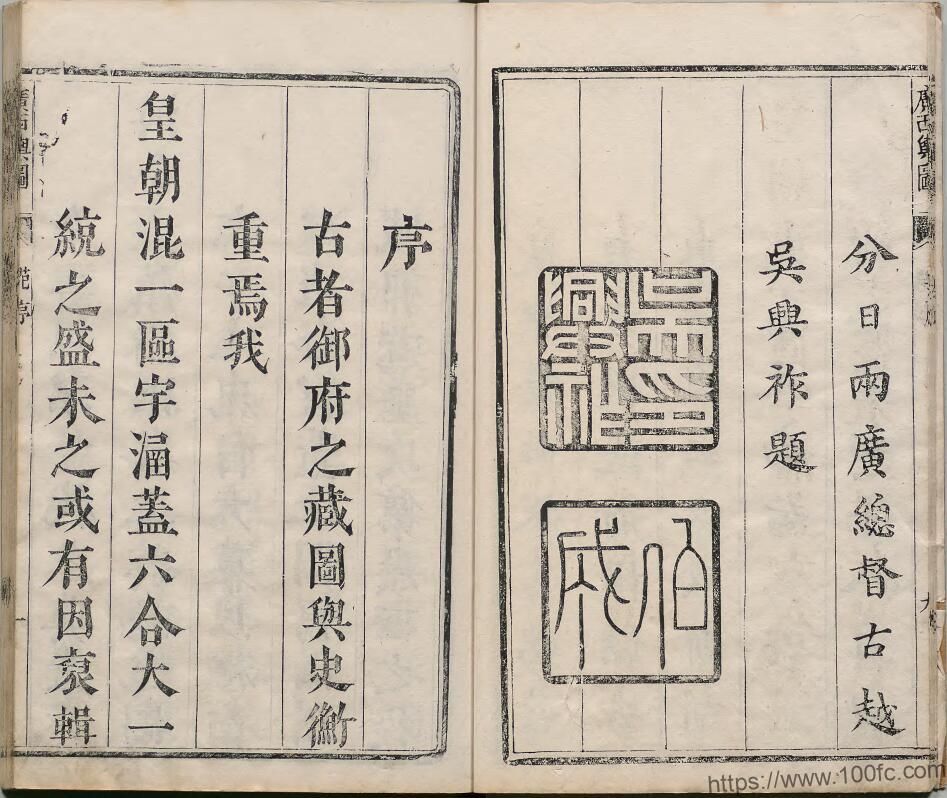 廣西輿圖
分日兩廣總督古越
吳興祚題
伯成
序
古者御府之藏圖與史衡
重焉我
皇朝混一區宇涵蓋六合大一
統之盛未之或有因裒輯
廣西輿圖
https://www.100fc.com